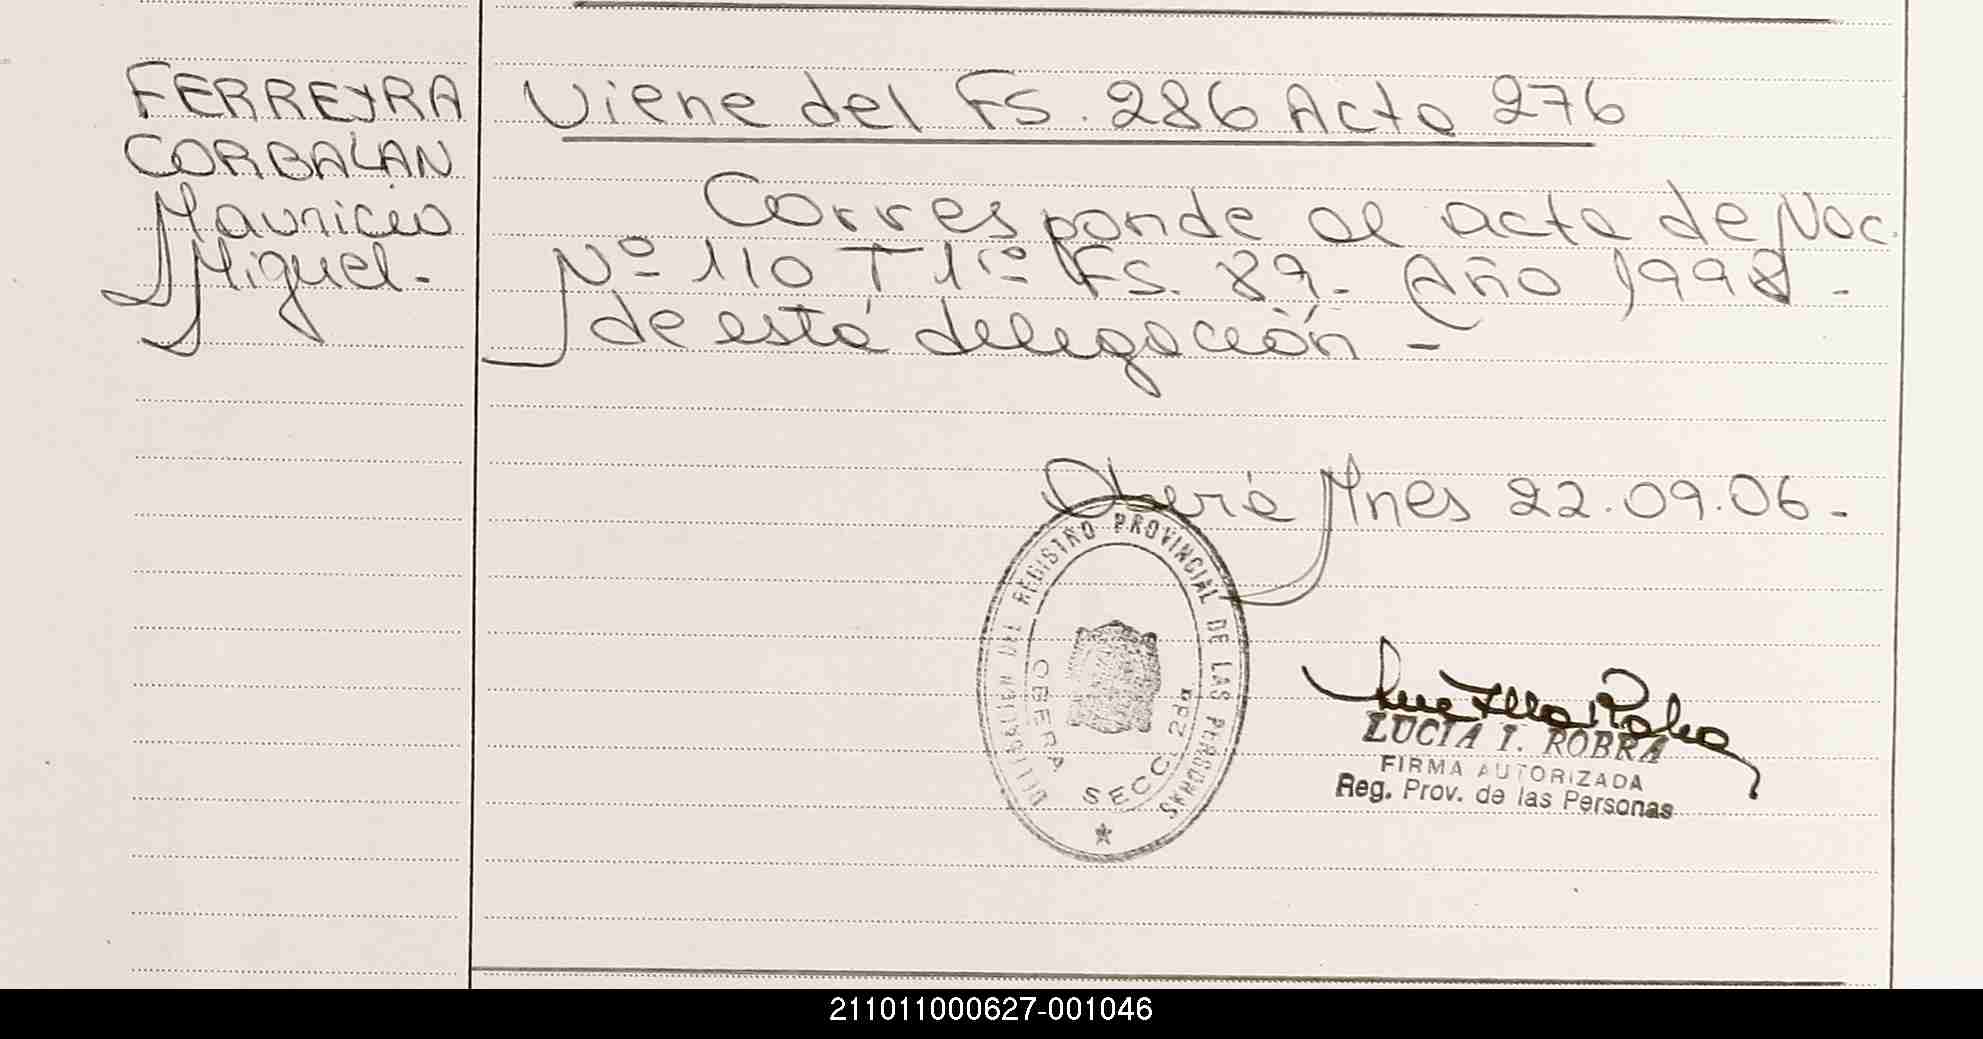 FERREYRA
CORBALAN
Mauricio
Miguel.
Viene del Fs. 286 Acta 276
Corresponde al acta de Nac.
Nº 110 T 1º Fs. 89. Año 1998.
de está delegación -
Oberá Mnes 22.09.06.-
DELEGACION DEL REGISTRO PROVINCIAL DE LAS PERSONAS
OBERA SECC. 2da
LUCIA I. ROBRA
FIRMA AUTORIZADA
Reg. Prov. de las Personas
211011000627-001046